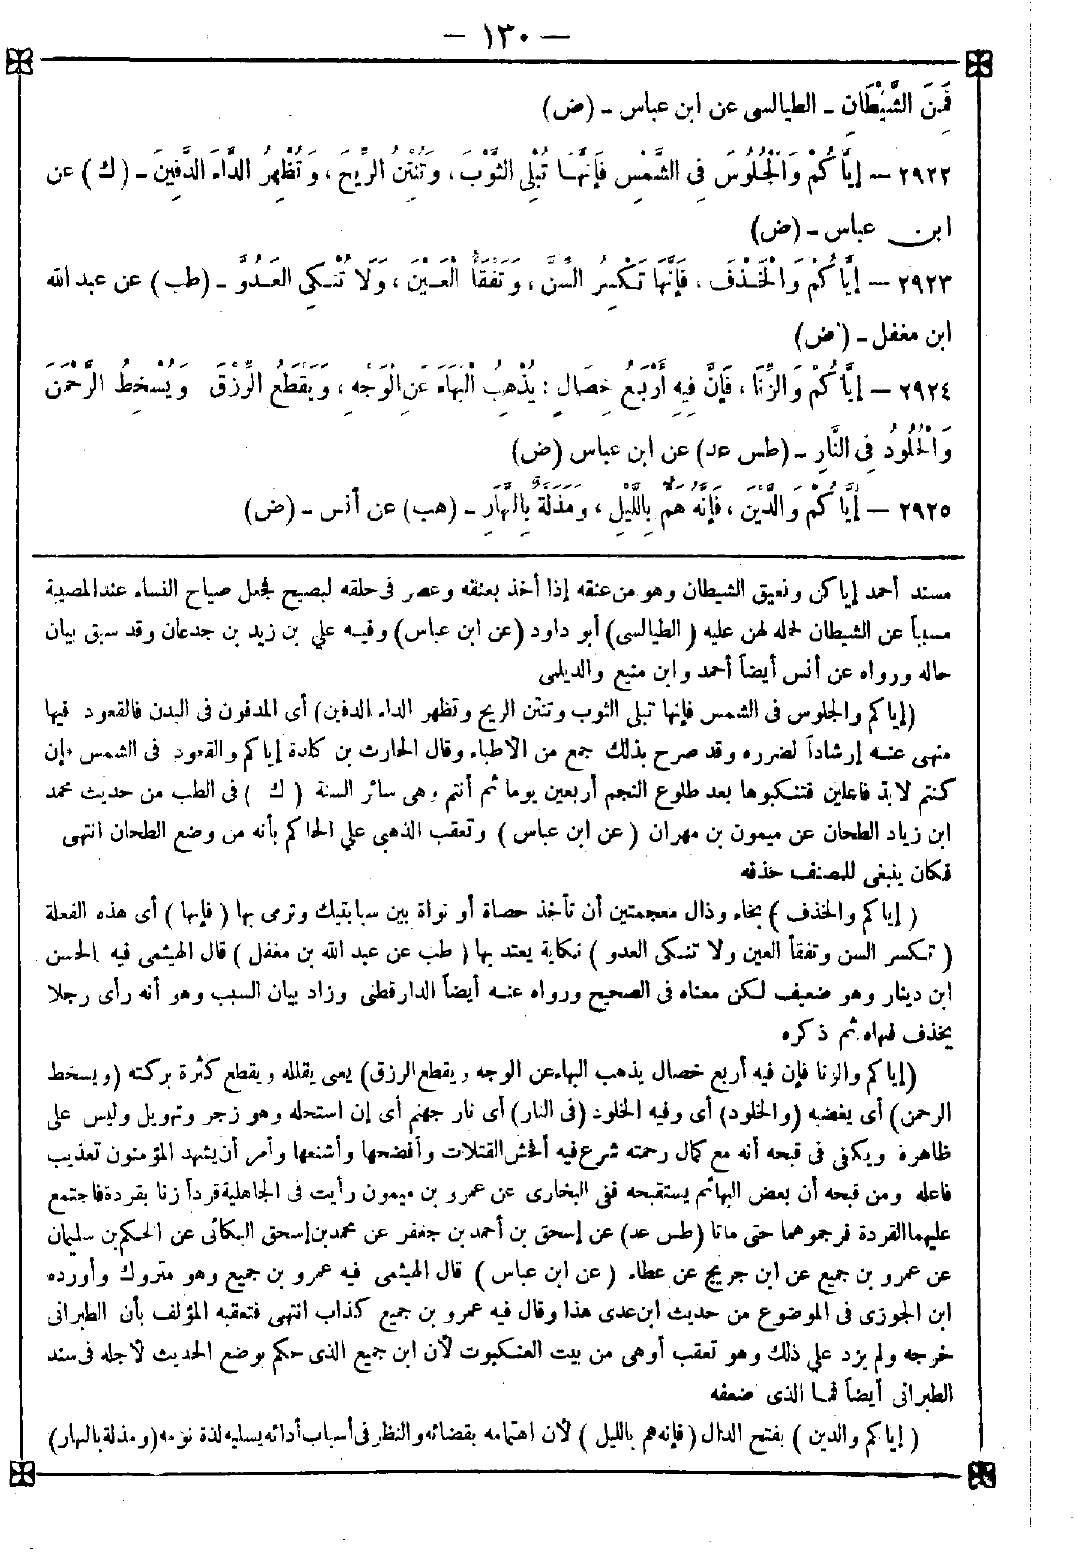 — ١٣٠ —
فَمِنَ الشَّيْطَانِ - الطيالسى عن ابن عباس - (ض)
٢٩٢٢ — إِيَّاكُمْ وَالْجُلُوسَ فِى الشَّمْسِ فَإِنَّهَا تُبْلِى الثَّوْبَ، وَتُنْتِنُ الرِّيحَ، وَتُظْهِرُ الدَّاءَ الدَّفِينَ - (ك) عن
ابن عباس - (ض)
٢٩٢٣ — إِيَّاكُمْ وَالْخَذْفَ، فَإِنَّهَا تَكْسِرُ السِّنَّ، وَتَفْقَأُ الْعَيْنَ، وَلَا تُنْكِى الْعَدُوَّ - (طب) عن عبد الله
ابن مغفل - (ض)
٢٩٢٤ — إِيَّاكُمْ وَالزِّنَا، فَإِنَّ فِيهِ أَرْبَعَ خِصَالٍ: يُذْهِبُ الْبَهَاءَ عَنِ الْوَجْهِ، وَيَقْطَعُ الرِّزْقَ وَيُسْخِطُ الرَّحْمَنَ
وَالْخُلُودُ فِى النَّارِ - (طس عد) عن ابن عباس (ض)
٢٩٢٥ — إِيَّاكُمْ وَالدَّيْنَ، فَإِنَّهُ هَمٌّ بِاللَّيْلِ، وَمَذَلَّةٌ بِالنَّهَارِ - (هب) عن أنس - (ض)
مسند أحمد إياكن ونعيق الشيطان وهو من عنقه إذا أخذ بعنقه وعصر فى حلقه ليصيح فجعل صياح النساء عند المصيبة
مسبباً عن الشيطان لحمله لهن عليه (الطيالسى) أبو داود (عن ابن عباس) وفيه علي بن زيد بن جدعان وقد سبق بيان
حاله ورواه عن أنس أيضاً أحمد وابن منيع والديلمى
(إياكم والجلوس فى الشمس فإنها تبلى الثوب وتنتن الريح وتظهر الداء الدفين) أى المدفون فى البدن فالقعود فيها
منهى عنه إرشاداً لضرره وقد صرح بذلك جمع من الأطباء وقال الحارث بن كلدة إياكم والقعود فى الشمس فإن
كنتم لابدّ فاعلين فتنكبوها بعد طلوع النجم أربعين يوما ثم أنتم وهى سائر السنة (ك) فى الطب من حديث محمد
ابن زياد الطحان عن ميمون بن مهران (عن ابن عباس) وتعقب الذهبي علي الحاكم بأنه من وضع الطحان انتهى
فكان ينبغى للمصنف حذفه
(إياكم والخذف) بخاء وذال معجمتين أن تأخذ حصاة أو نواة بين سبابتيك وترمى بها (فإنها) أى هذه الفعلة
(تكسر السن وتفقأ العين ولا تنكى العدو) نكاية يعتد بها (طب عن عبد الله بن مغفل) قال الهيثمى فيه الحسن
ابن دينار وهو ضعيف لكن معناه فى الصحيح ورواه عنه أيضاً الدارقطنى وزاد بيان السبب وهو أنه رأى رجلا
يخذف فنهاه ثم ذكره
(إياكم والزنا فإن فيه أربع خصال يذهب البهاء عن الوجه ويقطع الرزق) يعنى يقلله ويقطع كثرة بركته (ويسخط
الرحمن) أى يغضبه (والخلود) أى وفيه الخلود (فى النار) أى نار جهنم أى إن استحله وهو زجر وتهويل وليس على
ظاهرة ويكفى فى قبحه أنه مع كمال رحمته شرع فيه أفحش القتلات وأفضحها وأشنعها وأمر أن يشهد المؤمنون تعذيب
فاعله ومن قبحه أن بعض البهائم يستقبحه ففى البخارى عن عمرو بن ميمون رأيت فى الجاهلية قرداً زنا بقردة فاجتمع
عليهما القردة فرجموهما حتى ماتا (طس عد) عن إسحق بن أحمد بن جعفر عن محمد بن إسحق البكائى عن الحكم بن سليمان
عن عمرو بن جميع عن ابن جريج عن عطاء (عن ابن عباس) قال الهيثمى فيه عمرو بن جميع وهو متروك وأورده
ابن الجوزى فى الموضوع من حديث ابن عدى هذا وقال فيه عمرو بن جميع كذاب انتهى فتعقبه المؤلف بأن الطبرانى
خرجه ولم يزد علي ذلك وهو تعقب أوهى من بيت العنكبوت لأن ابن جميع الذى حكم بوضع الحديث لأجله فى سند
الطبرانى أيضاً فما الذى ضعفه
(إياكم والدين) بفتح الدال (فإنه هم بالليل) لأن اهتمامه بقضائه والنظر فى أسباب أدائه يسلبه لذة نومه (ومذلة بالنهار)